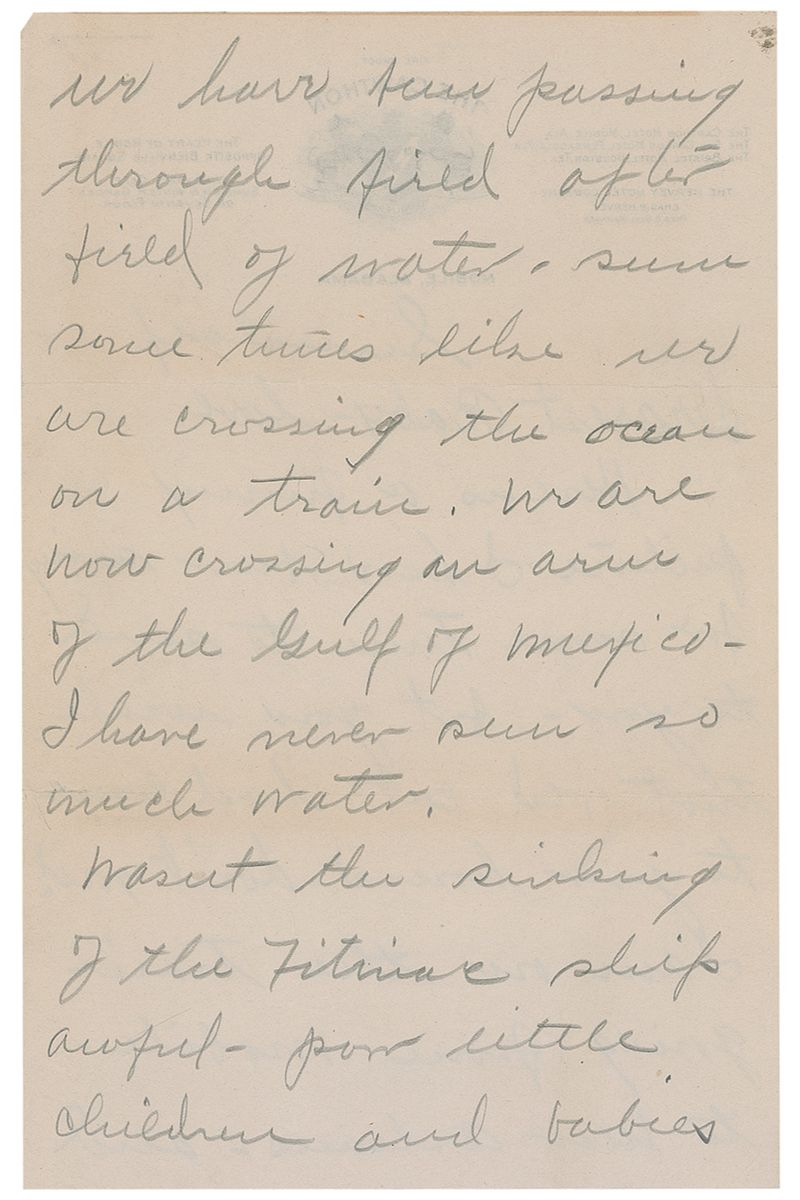 we have been passing
through field after
field of water - seem
some times like we
are crossing the ocean
on a train. We are
now crossing an arm
of the Gulf of Mexico -
I have never seen so
much water.
Wasnt the sinking
of the Titinac ship
awful - poor little
children and babies